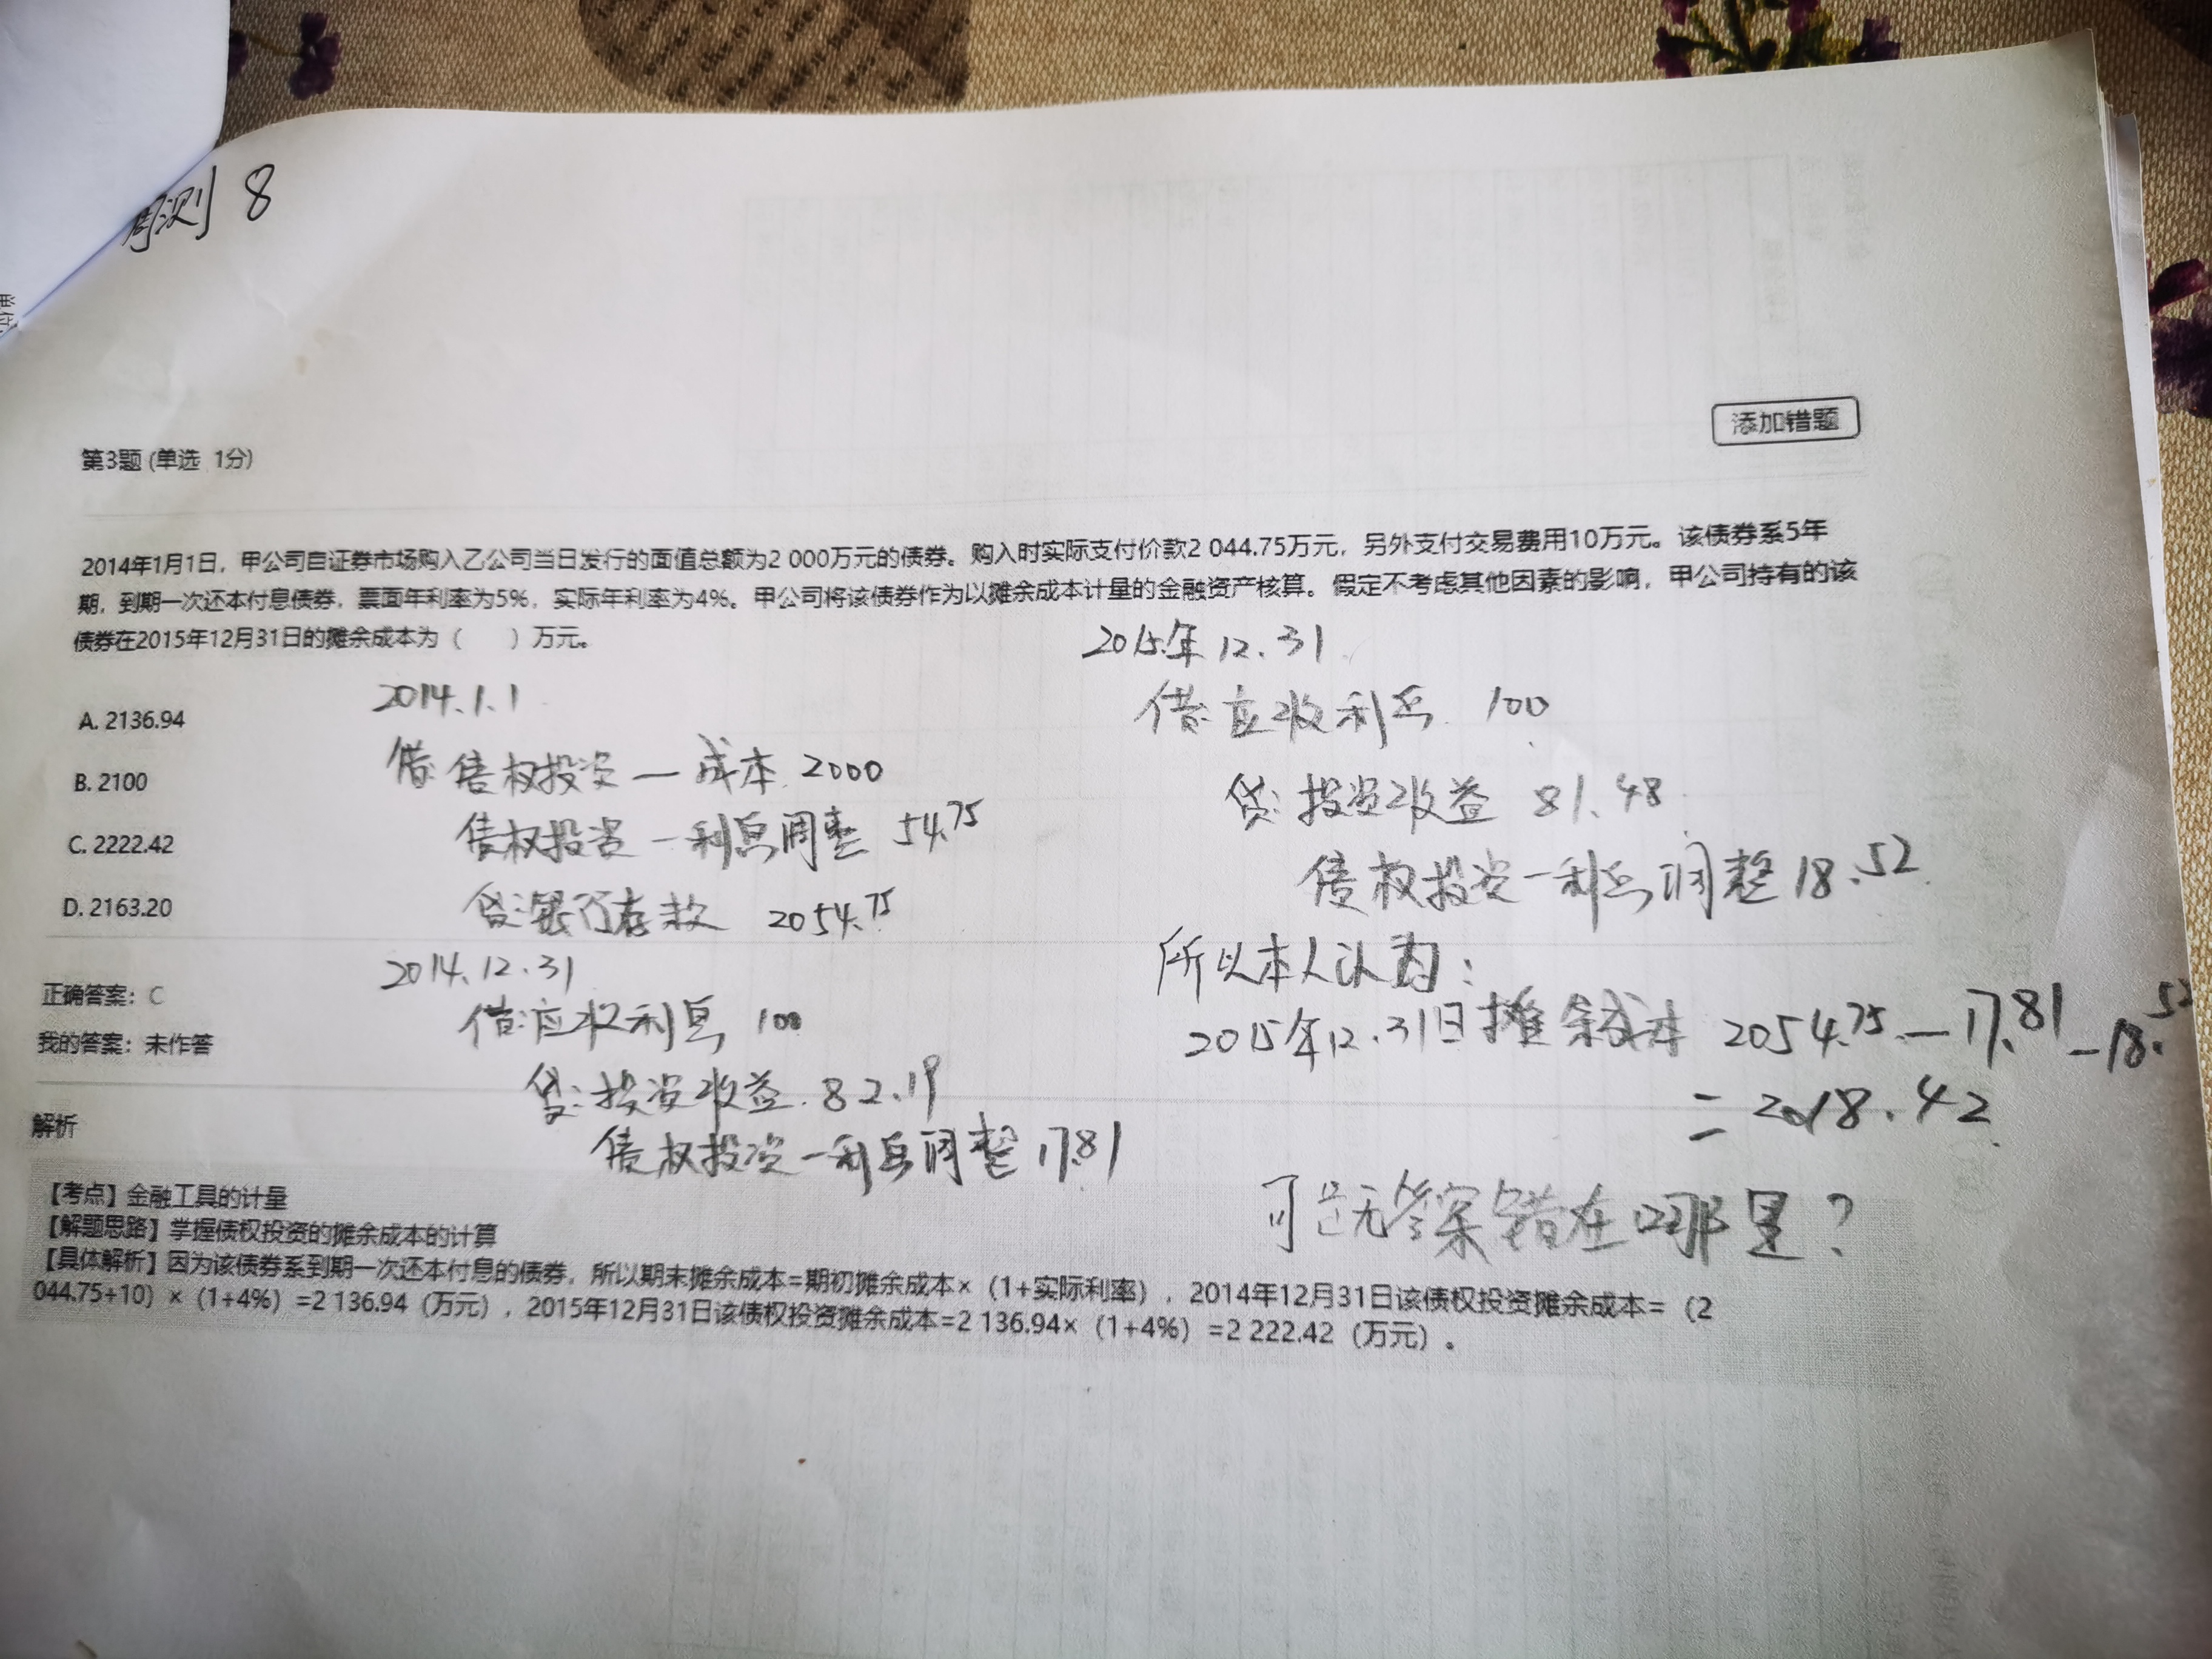 周测 8
添加错题
第3题 (单选 1分)
2014年1月1日，甲公司自证券市场购入乙公司当日发行的面值总额为2 000万元的债券。购入时实际支付价款2 044.75万元，另外支付交易费用10万元。该债券系5年
期，到期一次还本付息债券，票面年利率为5%，实际年利率为4%。甲公司将该债券作为以摊余成本计量的金融资产核算。假定不考虑其他因素的影响，甲公司持有的该
债券在2015年12月31日的摊余成本为（ ）万元。
A. 2136.94
B. 2100
C. 2222.42
D. 2163.20
2014.1.1
借：债权投资—成本 2000
债权投资—利息调整 54.75
贷：银行存款 2054.75
2014.12.31
借：应收利息 100
贷：投资收益 82.19
债权投资—利息调整 17.81
2015年12.31
借：应收利息 100
贷：投资收益 81.48
债权投资—利息调整 18.52
所以本人认为：
2015年12.31日摊余成本 2054.75—17.81—18.52
=2018.42
可是无答案错在哪里？
正确答案：C
我的答案：未作答
解析
【考点】金融工具的计量
【解题思路】掌握债权投资的摊余成本的计算
【具体解析】因为该债券系到期一次还本付息的债券，所以期末摊余成本=期初摊余成本×（1+实际利率），2014年12月31日该债权投资摊余成本=（2
044.75+10）×（1+4%）=2 136.94（万元），2015年12月31日该债权投资摊余成本=2 136.94×（1+4%）=2 222.42（万元）。